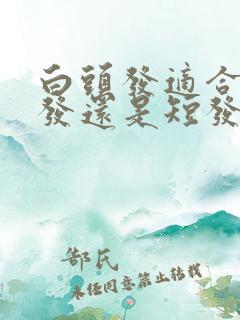 白頭發適合
發還是短發
郜氏
未经同意禁止转载